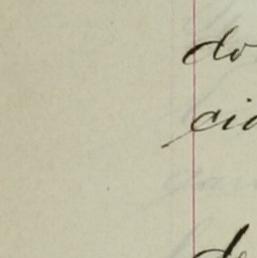 do
cia
de